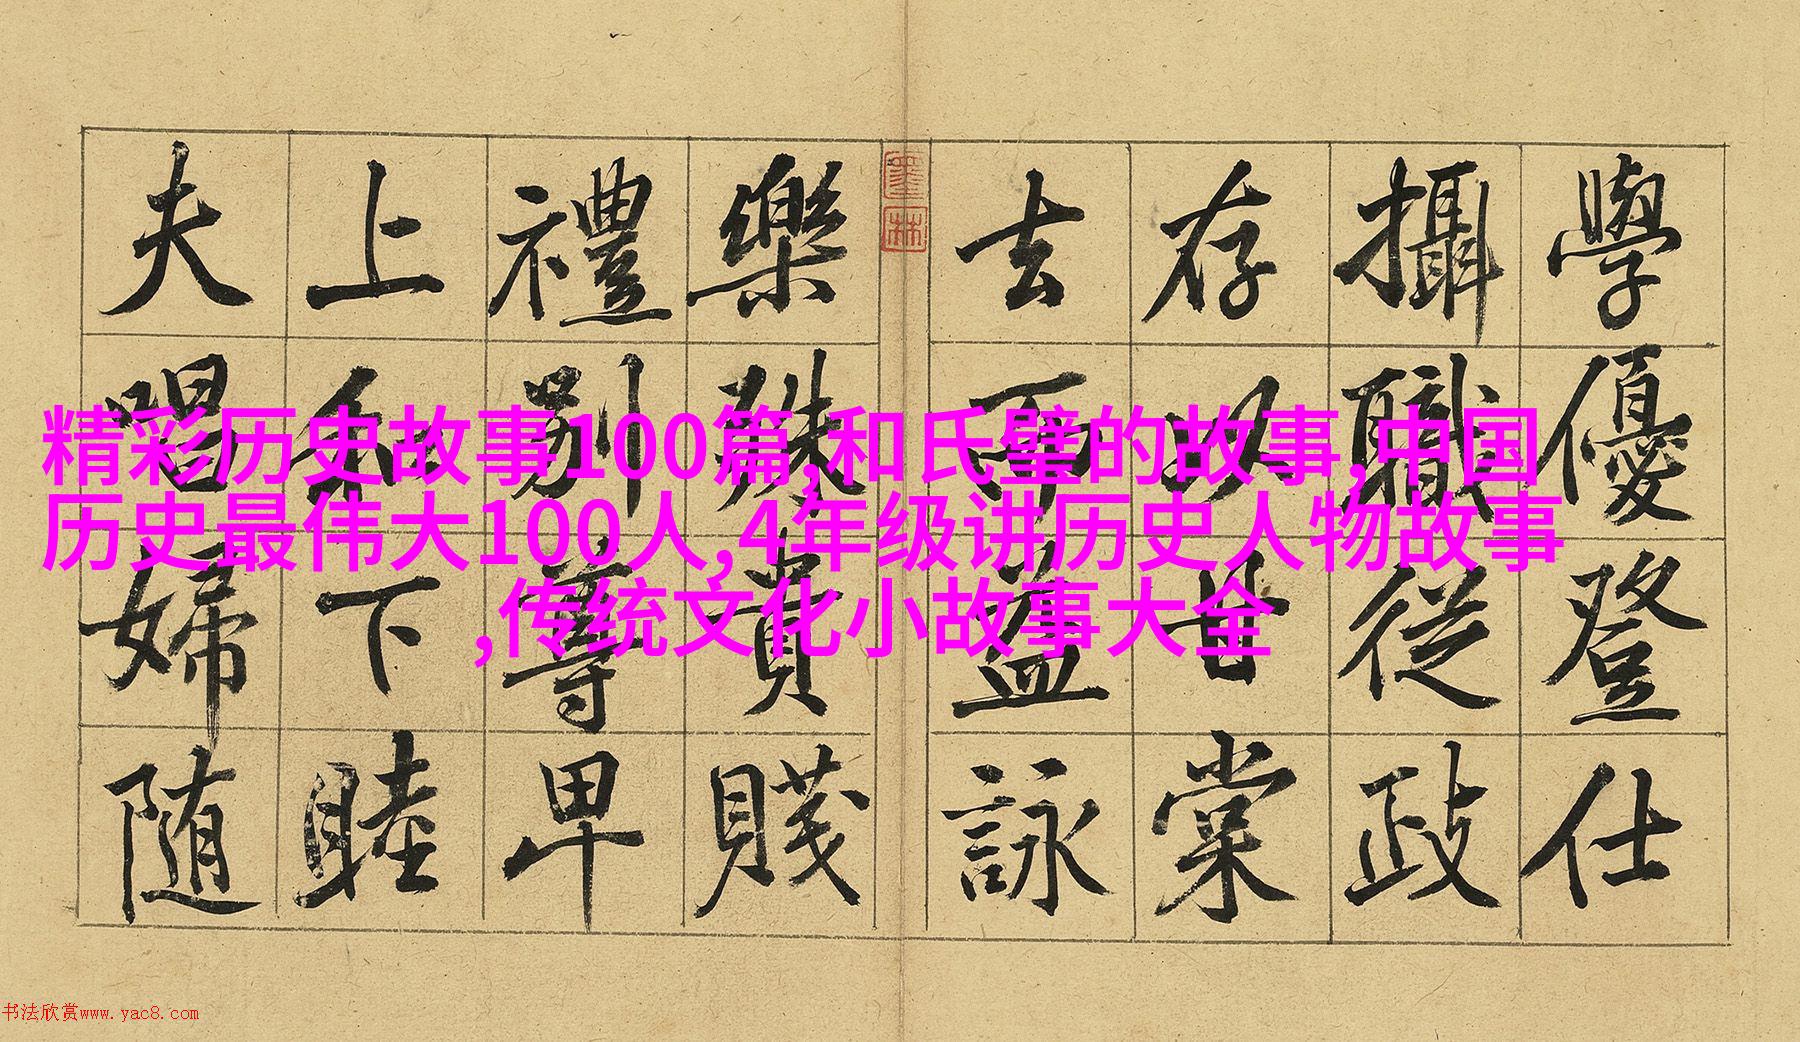 學優登仕
攝職從政
存以甘棠
去而益詠
樂殊貴賤
禮別尊卑
上和下睦
夫唱婦随
墨林
精彩历史故事100篇,和氏璧的故事,中国
历史最伟大100人,4年级讲历史人物故事
,传统文化小故事大全
书法欣赏www.yac8.com